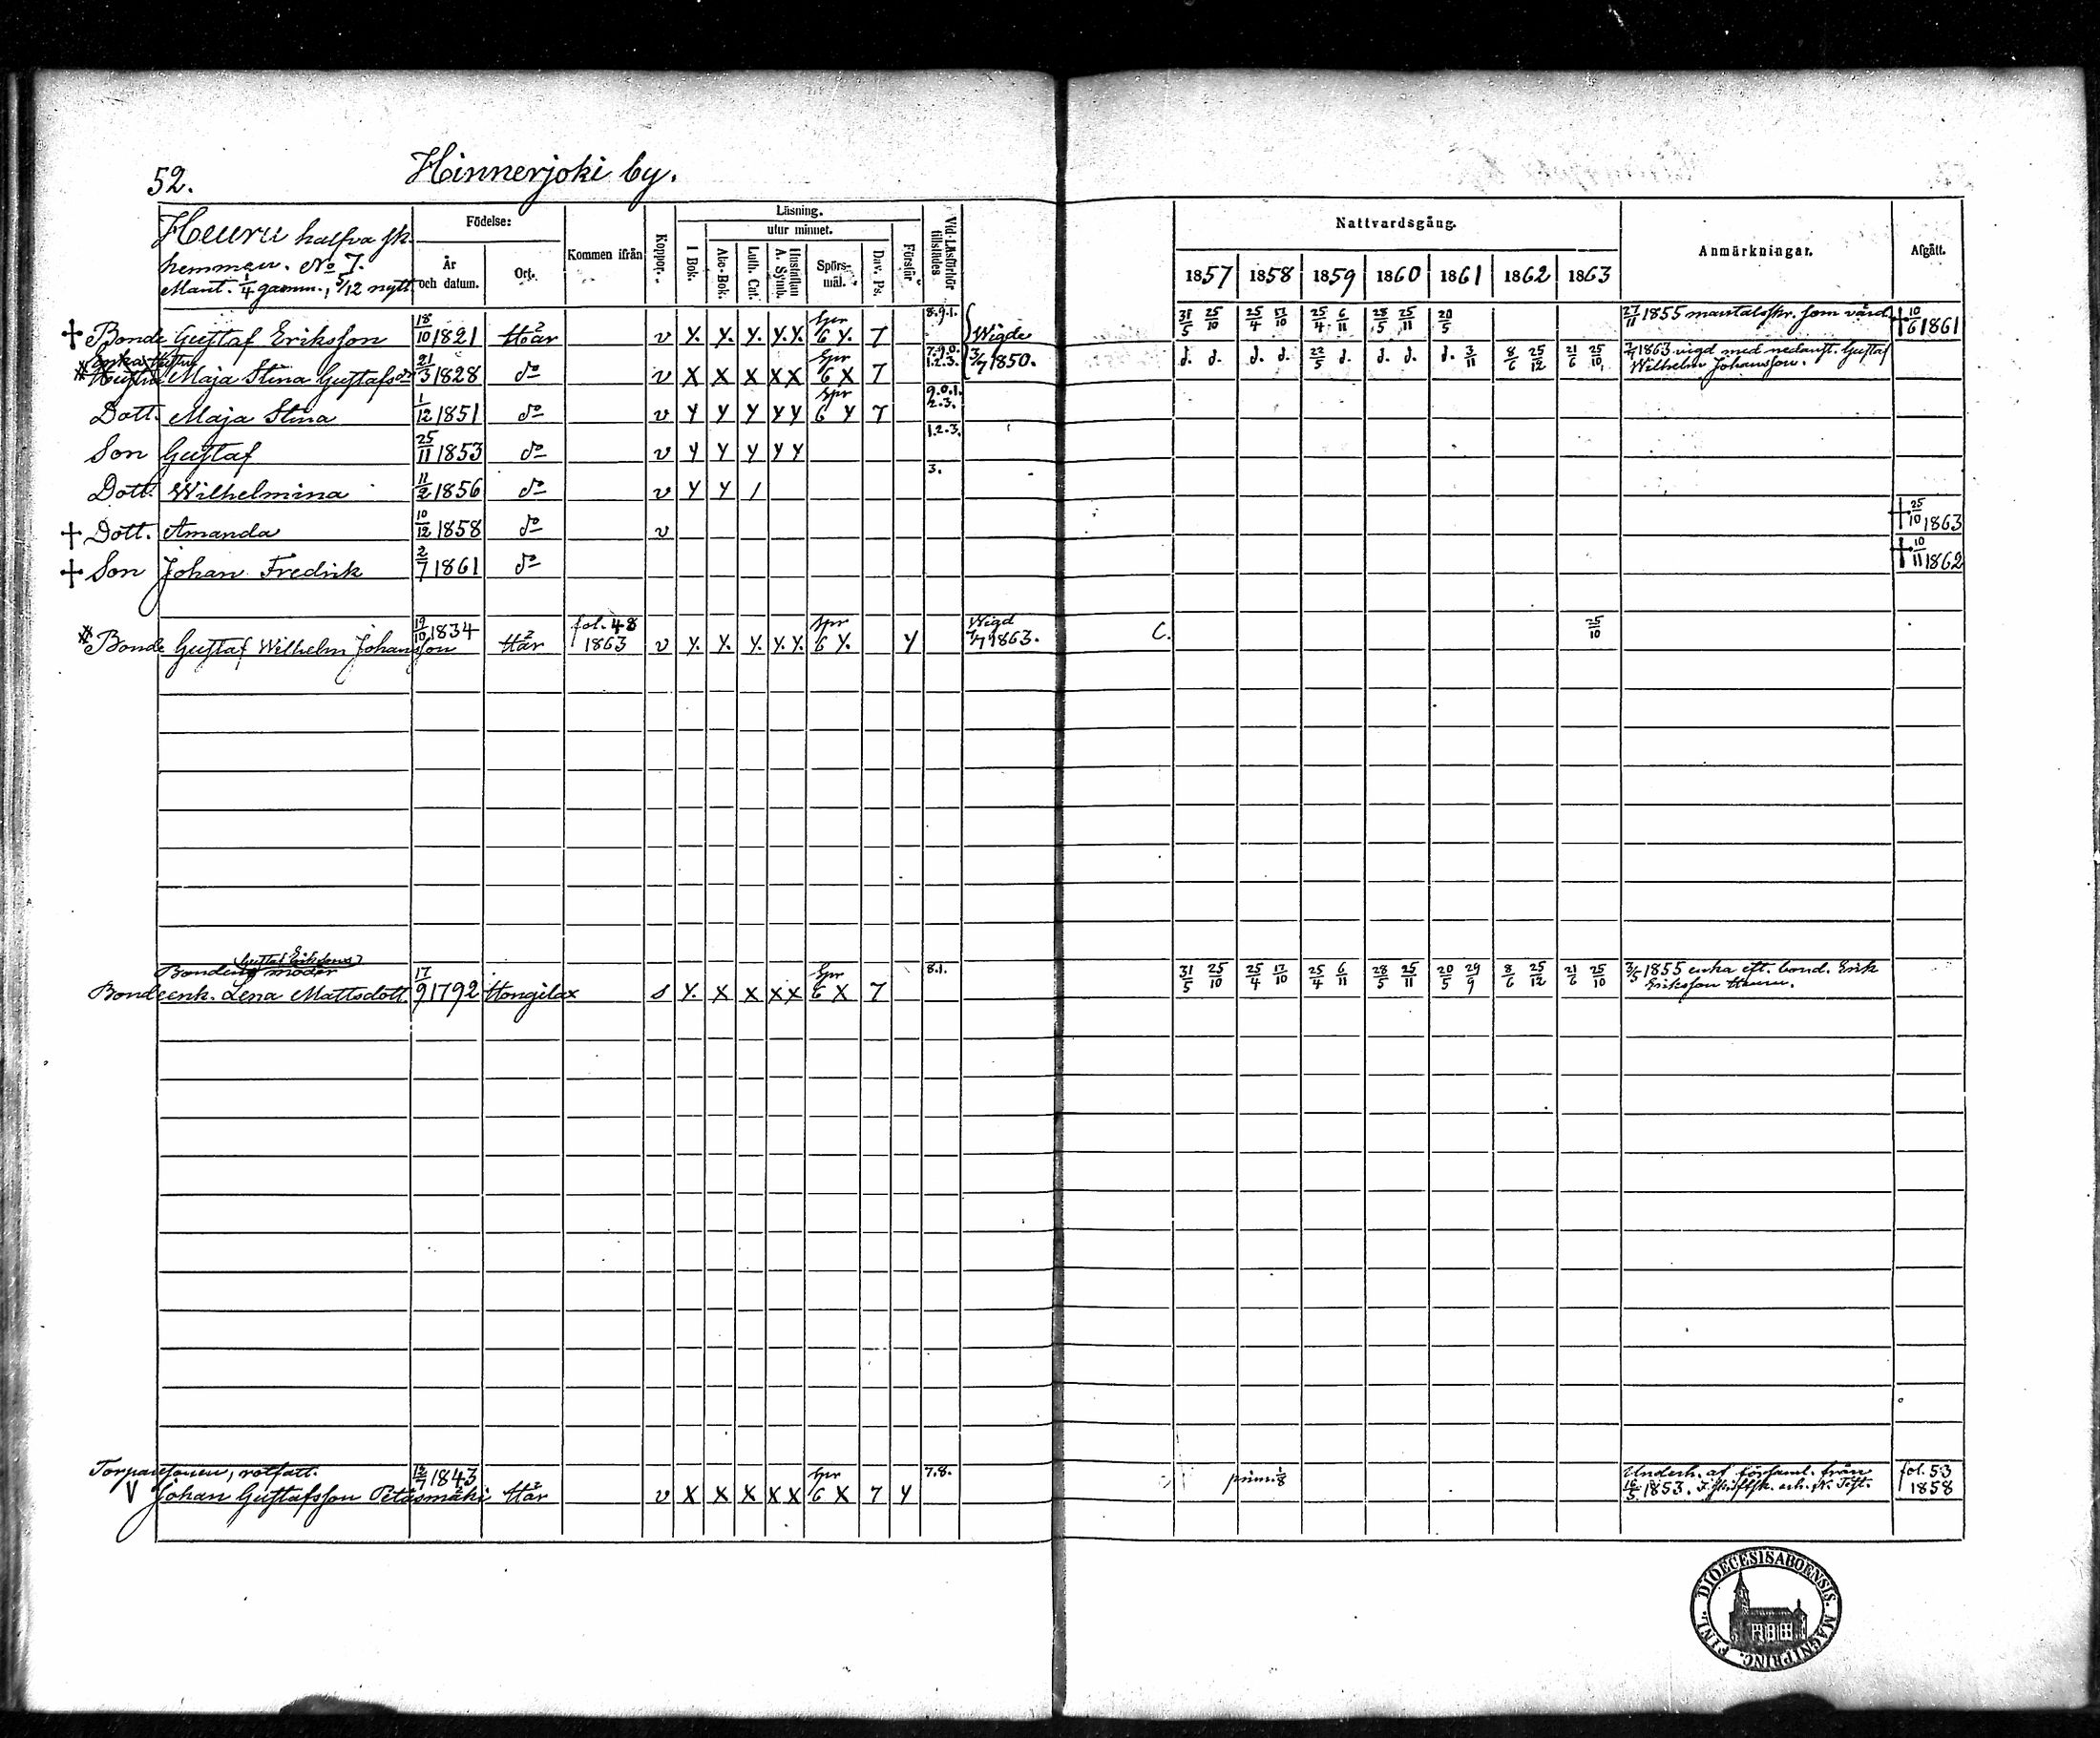 52.
Hinnerjoki by.
Heuru halfva sk.
hemman. No 7.
Mant. 1/4 gamm., 5/12 nytt.
Födelse:
År och datum.
Ort.
Kommen ifrån
Koppor.
Läsning.
I Bok.
utur minnet.
Abc-Bok.
Luth. Cat.
Hustaflan A. Symb.
Spörs-mål.
Dav. Ps.
Förstår
Vid Läsförhör tillstädes
Nattvardsgång.
1857 1858 1859 1860 1861 1862 1863
Anmärkningar.
Afgått.
† Bonde Gustaf Eriksson 18/10 1821 Här v Y. Y. Y. Y. Y. Spr 6 Y. 7 8.9.1. Wigde 31/5 25/10 25/4 17/10 25/4 6/11 28/5 25/11 20/5 27/11 1855 mantalsskr. som värd † 10/6 1861
Enka Hustru
Maja Stina Gustafsdr 21/3 1828 do v X X X X X Spr 6 X 7 7.9.0. 1.2.3. 3/7 1850. d. d. d. d. 22/5 d. d. d. d. 3/11 8/6 25/12 21/6 25/10 1863 vigd med nedanst. Gustaf
Wilhelm Johansson.
Dott. Maja Stina 1/12 1851 do v Y Y Y Y Y Spr 6 Y 7 9.0.1. 2.3.
Son Gustaf 25/11 1853 do v Y Y Y Y Y 1.2.3.
Dott. Wilhelmina 11/2 1856 do v Y Y / 3.
† Dott. Amanda 10/12 1858 do v † 25/10 1863
† Son Johan Fredrik 2/7 1861 do † 10/11 1862
Bonde Gustaf Wilhelm Johansson 19/10 1834 Här fol. 48 1863 v Y. Y. Y. Y. Y. Spr 6 Y. Y Wigd 1863. C. 25/10
Gustaf Erikssons
Bondens moder
Bondeenk. Lena Mattsdott. 17/9 1792 Hongilax s Y. X X X X Spr 6 X 7 8.1. 31/5 25/10 25/4 17/10 25/4 6/11 28/5 25/11 20/5 29/9 8/6 25/12 21/6 25/10 3/5 1855 enka eft. bond. Erik
Eriksson Heuru.
Torparesonen, rotfatt.
V Johan Gustafsson Petäsmäki 1843 Här v X X X X X Spr 6 X 7 Y 7.8. prim. 1/8 Underh. af församl. från
16/5 1853.
fol. 53
1858
DIOECESIS ABOENSIS. MAGNI PRINC. FINL.